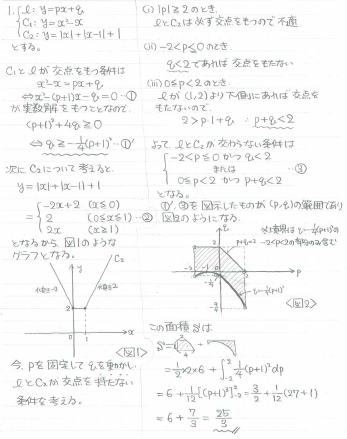 1. { l: y=px+q
C₁: y=x²-x
C₂: y=|x|+|x-1|+1
とする。
C₁とlが交点をもつ条件は
x²-x=px+q
⇔x²-(p+1)x-q=0…①
が実数解をもつことなので、
(p+1)²+4q≧0
⇔ q≧-1/4(p+1)²…①'
次にC₂について考えると、
y=|x|+|x-1|+1
= { -2x+2 (x≦0)
2 (0≦x≦1) …②
2x (x≧1)
となるから、図1のような
グラフとなる。
y
C₂
傾き-2
傾き2
2
0
1
x
<図1>
今、pを固定してqを動かし、
lとC₂が交点を持たない
条件を考える。
(i) |p|≧2のとき、
lとC₂は必ず交点をもつので不適
(ii) -2<p≦0のとき、
q<2であれば交点をもたない
(iii) 0≦p<2のとき、
lが(1,2)より下側にあれば交点を
もたないので、
2>p・1+q ∴ p+q<2
よってlとC₂が交わらない条件は
{ -2<p≦0かつq<2
または
0≦p<2かつp+q<2 …③
となる。
①'、③を図示したものが(p,q)の範囲であり
図2のようになる。
q
p+q=2
q=-1/4(p+1)²
-2<p<2の部分のみ含む
2
-2
-1
0
2
p
-9/4
<図2>
この面積Sは
S=
+
=1/2×2×6+∫₋₂² 1/4(p+1)²dp
=6+1/12[(p+1)³]₋₂²
=6+7/3=25/3